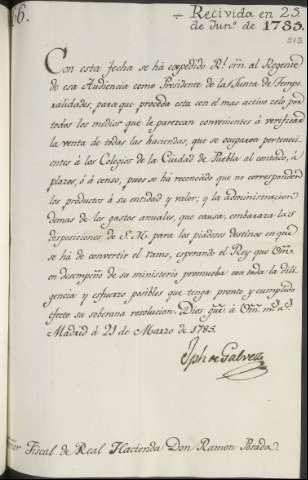 ÷ Recivida en 25
de Jun.º de 1785.
Con esta fecha se há expedido R.l orñ. al Regente
de esa Audiencia como Presidente de la Junta de Tempo
ralidades, para que proceda esta con el mas activo zelo por
todos los medios que le parezcan convenientes á verificar
la venta de todas las haciendas, que se ocuparon pertenecí-
entes á los Colegios de la Ciudad de Puebla al contado, á
plazos, ó á censo, pues se há reconocido que no corresponden
los productos á su entidad y valor; y la administracion
demas de los gastos anuales, que causa, embaraza las
disposiciones de S. M. para los piadosos destinos en que
se há de convertir el ramo, esperando el Rey que Vm.
en desempeño de su ministerio promueba con toda la dili-
gencia y esfuerzo posibles que tenga pronto y cumplido
efecto su soberana resolucion. Dios güe á Vm. m.s a.s
Madrid á 21 de Marzo de 1785.
Jph de Galvez
Fiscal de Real Hacienda Don Ramon Posada.